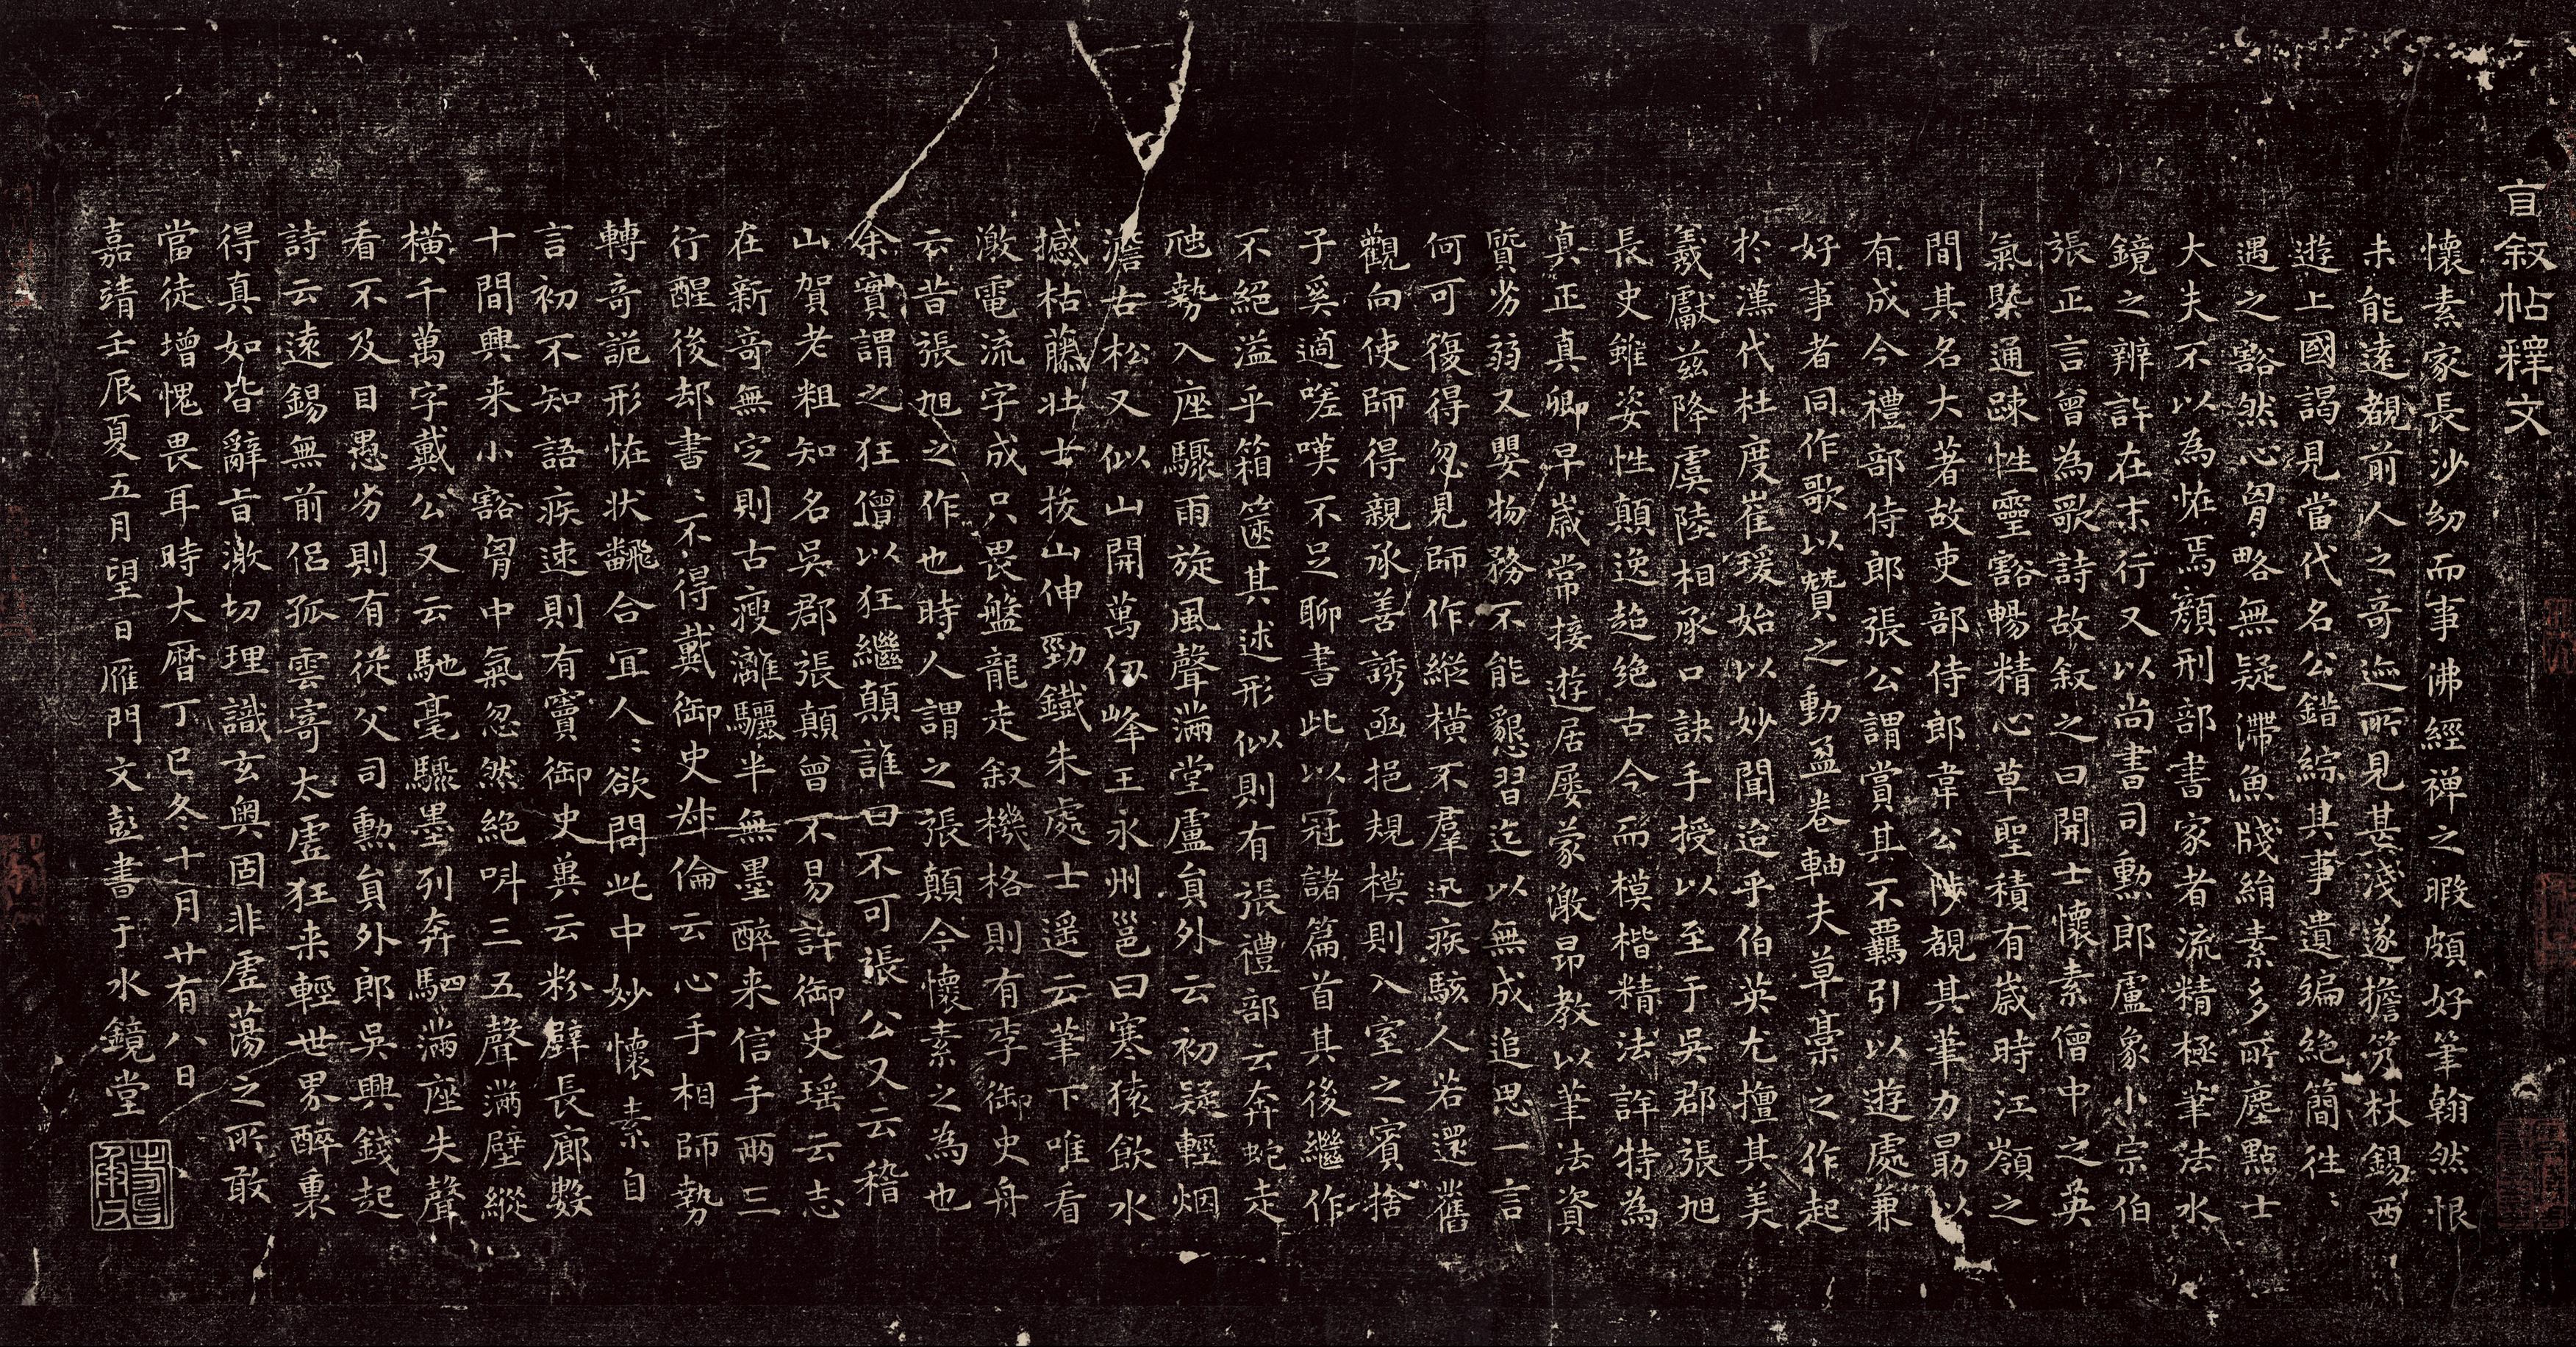 自叙帖釋文
懷素家長沙幼而事佛經禪之暇頗好筆翰然恨
未能遠覩前人之奇迹所見甚淺遂擔笈杖錫西
遊上國謁見當代名公錯綜其事遺編絕簡往〻
遇之豁然心胷略無疑滯魚牋絹素多所塵點士
大夫不以為恠焉顏刑部書家者流精極筆法水
鏡之辨許在末行又以尚書司勳郎盧象小宗伯
張正言曾為歌詩故叙之曰開士懷素僧中之英
氣槩通踈性靈豁暢精心草聖積有歲時江嶺之
間其名大著故吏部侍郎韋公陟覩其筆力勗以
有成今禮部侍郎張公謂賞其不羈引以遊處兼
好事者同作歌以贊之動盈卷軸夫草藁之作起
於漢代杜度崔瑗始以妙聞迨乎伯英尤擅其美
羲獻茲降虞陸相承口訣手授以至于吳郡張旭
長史雖姿性顛逸超絶古今而模楷精法詳特為
真正真卿早歲常接遊居屡蒙激昂教以筆法資
質劣弱又嬰物務不能懇習迄以無成追思一言
何可復得忽見師作縱橫不羣迅疾駭人若還舊
觀向使師得親承善誘函挹規模則入室之賓捨
子奚適嗟嘆不足聊書此以冠諸篇首其後繼作
不絕溢乎箱篋其述形似則有張禮部云奔蛇走
虺勢入座驟雨旋風聲滿堂盧貟外云初疑輕烟
澹古松又似山開萬仞峰王永州邕曰寒猿飲水
撼枯藤壮士拔山伸勁鐵朱處士遥云筆下唯看
激電流字成只畏盤龍走叙機格則有李御史舟
云昔張旭之作也時人謂之張顛今懷素之為也
余實謂之狂僧以狂繼顛誰曰不可張公又云稽
山賀老粗知名吳郡張顛曾不易許御史瑶云志
在新奇無定則古瘦灕驪半無墨醉来信手兩三
行醒後却書〻不得戴御史叔倫云心手相師勢
轉奇詭形恠状翻合宜人〻欲問此中妙懷素自
言初不知語疾速則有竇御史兾云粉壁長廊數
十間興来小豁胷中氣忽然絶呌三五聲滿壁縱
橫千萬字戴公又云馳毫驟墨列奔駟滿座失聲
看不及目愚劣則有從父司勳貟外郎吳興錢起
詩云遠錫無前侣孤雲寄太虛狂来輕世界醉裏
得真如皆辭旨激切理識玄奥固非虛蕩之所敢
當徒增愧畏耳時大曆丁巳冬十月廿有八日
嘉靖壬辰夏五月望日雁門文彭書于水鏡堂